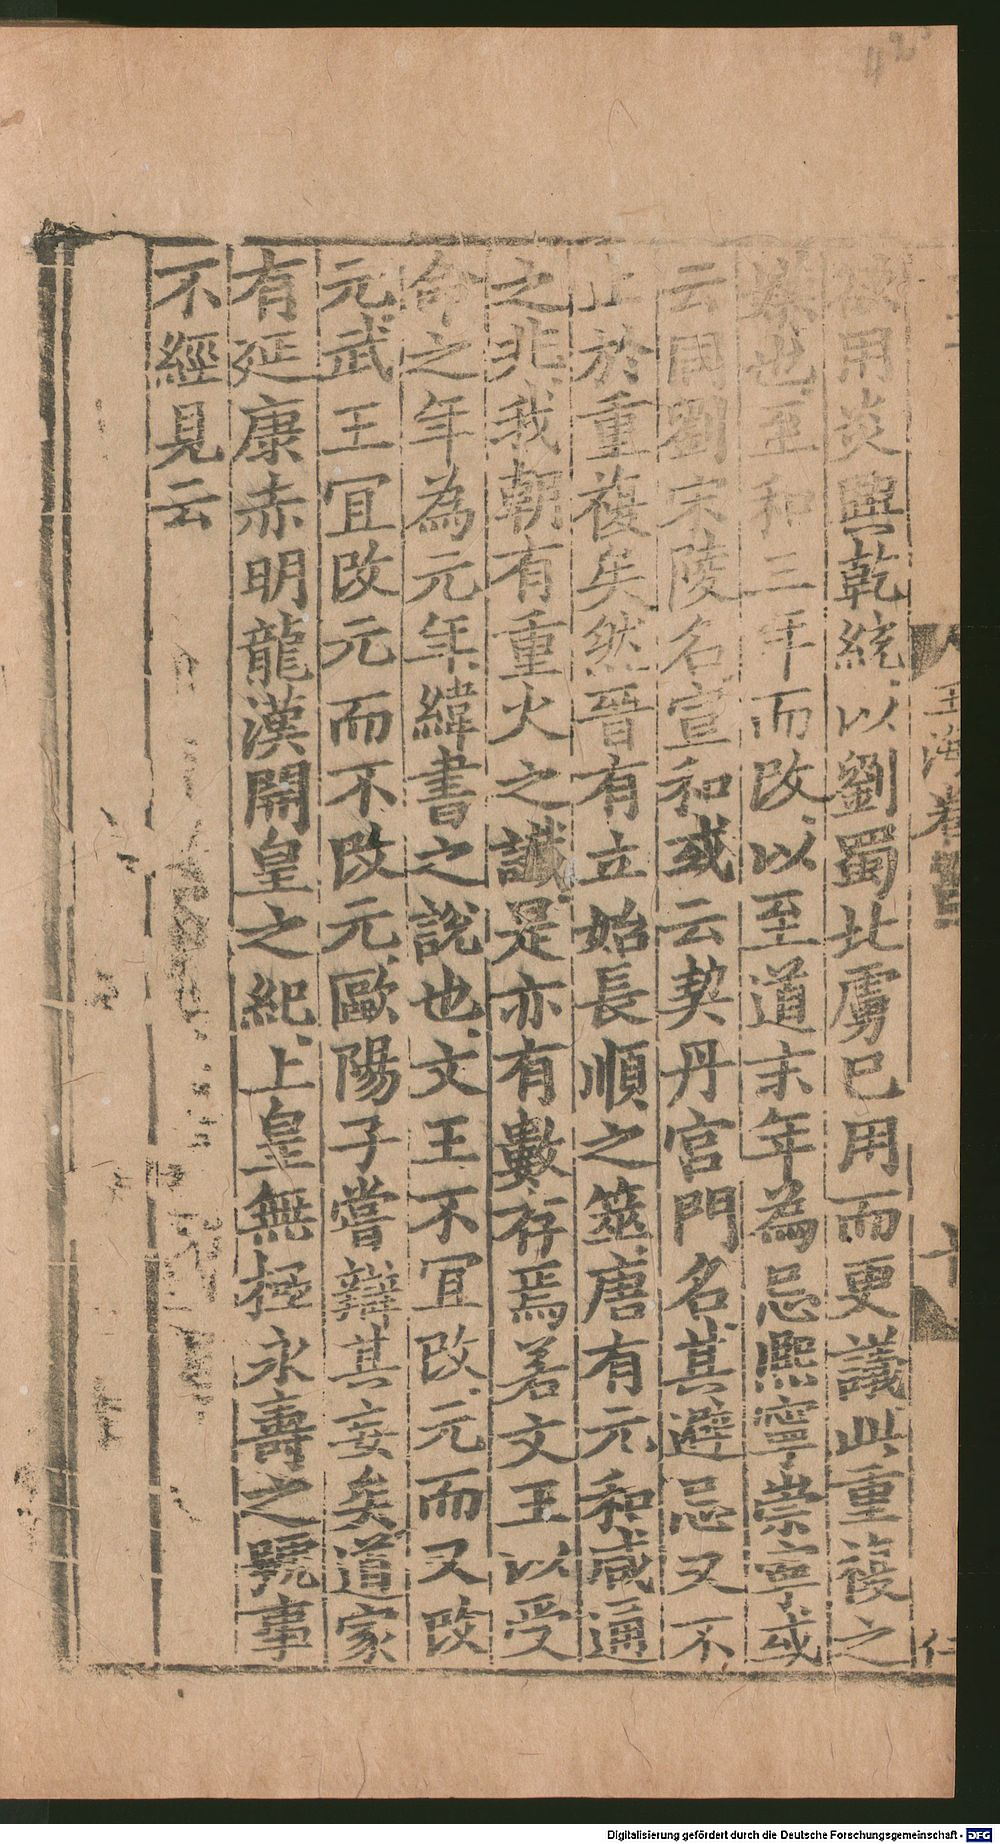 欲用炎興乾統以劉蜀北虜已用而更議此重複之
粲也至和三年而改以至道末年為忌熙寧崇寧或
云同劉宋陵名宣和或云契丹宮門名其避忌又不
止於重複矣然晉有立始長順之筮唐有元和咸通
之兆我朝有重火之讖是亦有數存焉若文王以受
命之年為元年緯書之說也文王不冝改元而又改
元武王冝改元而不改元歐陽子嘗辯其妄矣道家
有延康赤明龍漢開皇之紀上皇無極永壽之號事
不經見云
玉海卷
十
仁
42
Digitalisierung gefördert durch die Deutsche Forschungsgemeinschaft - DFG